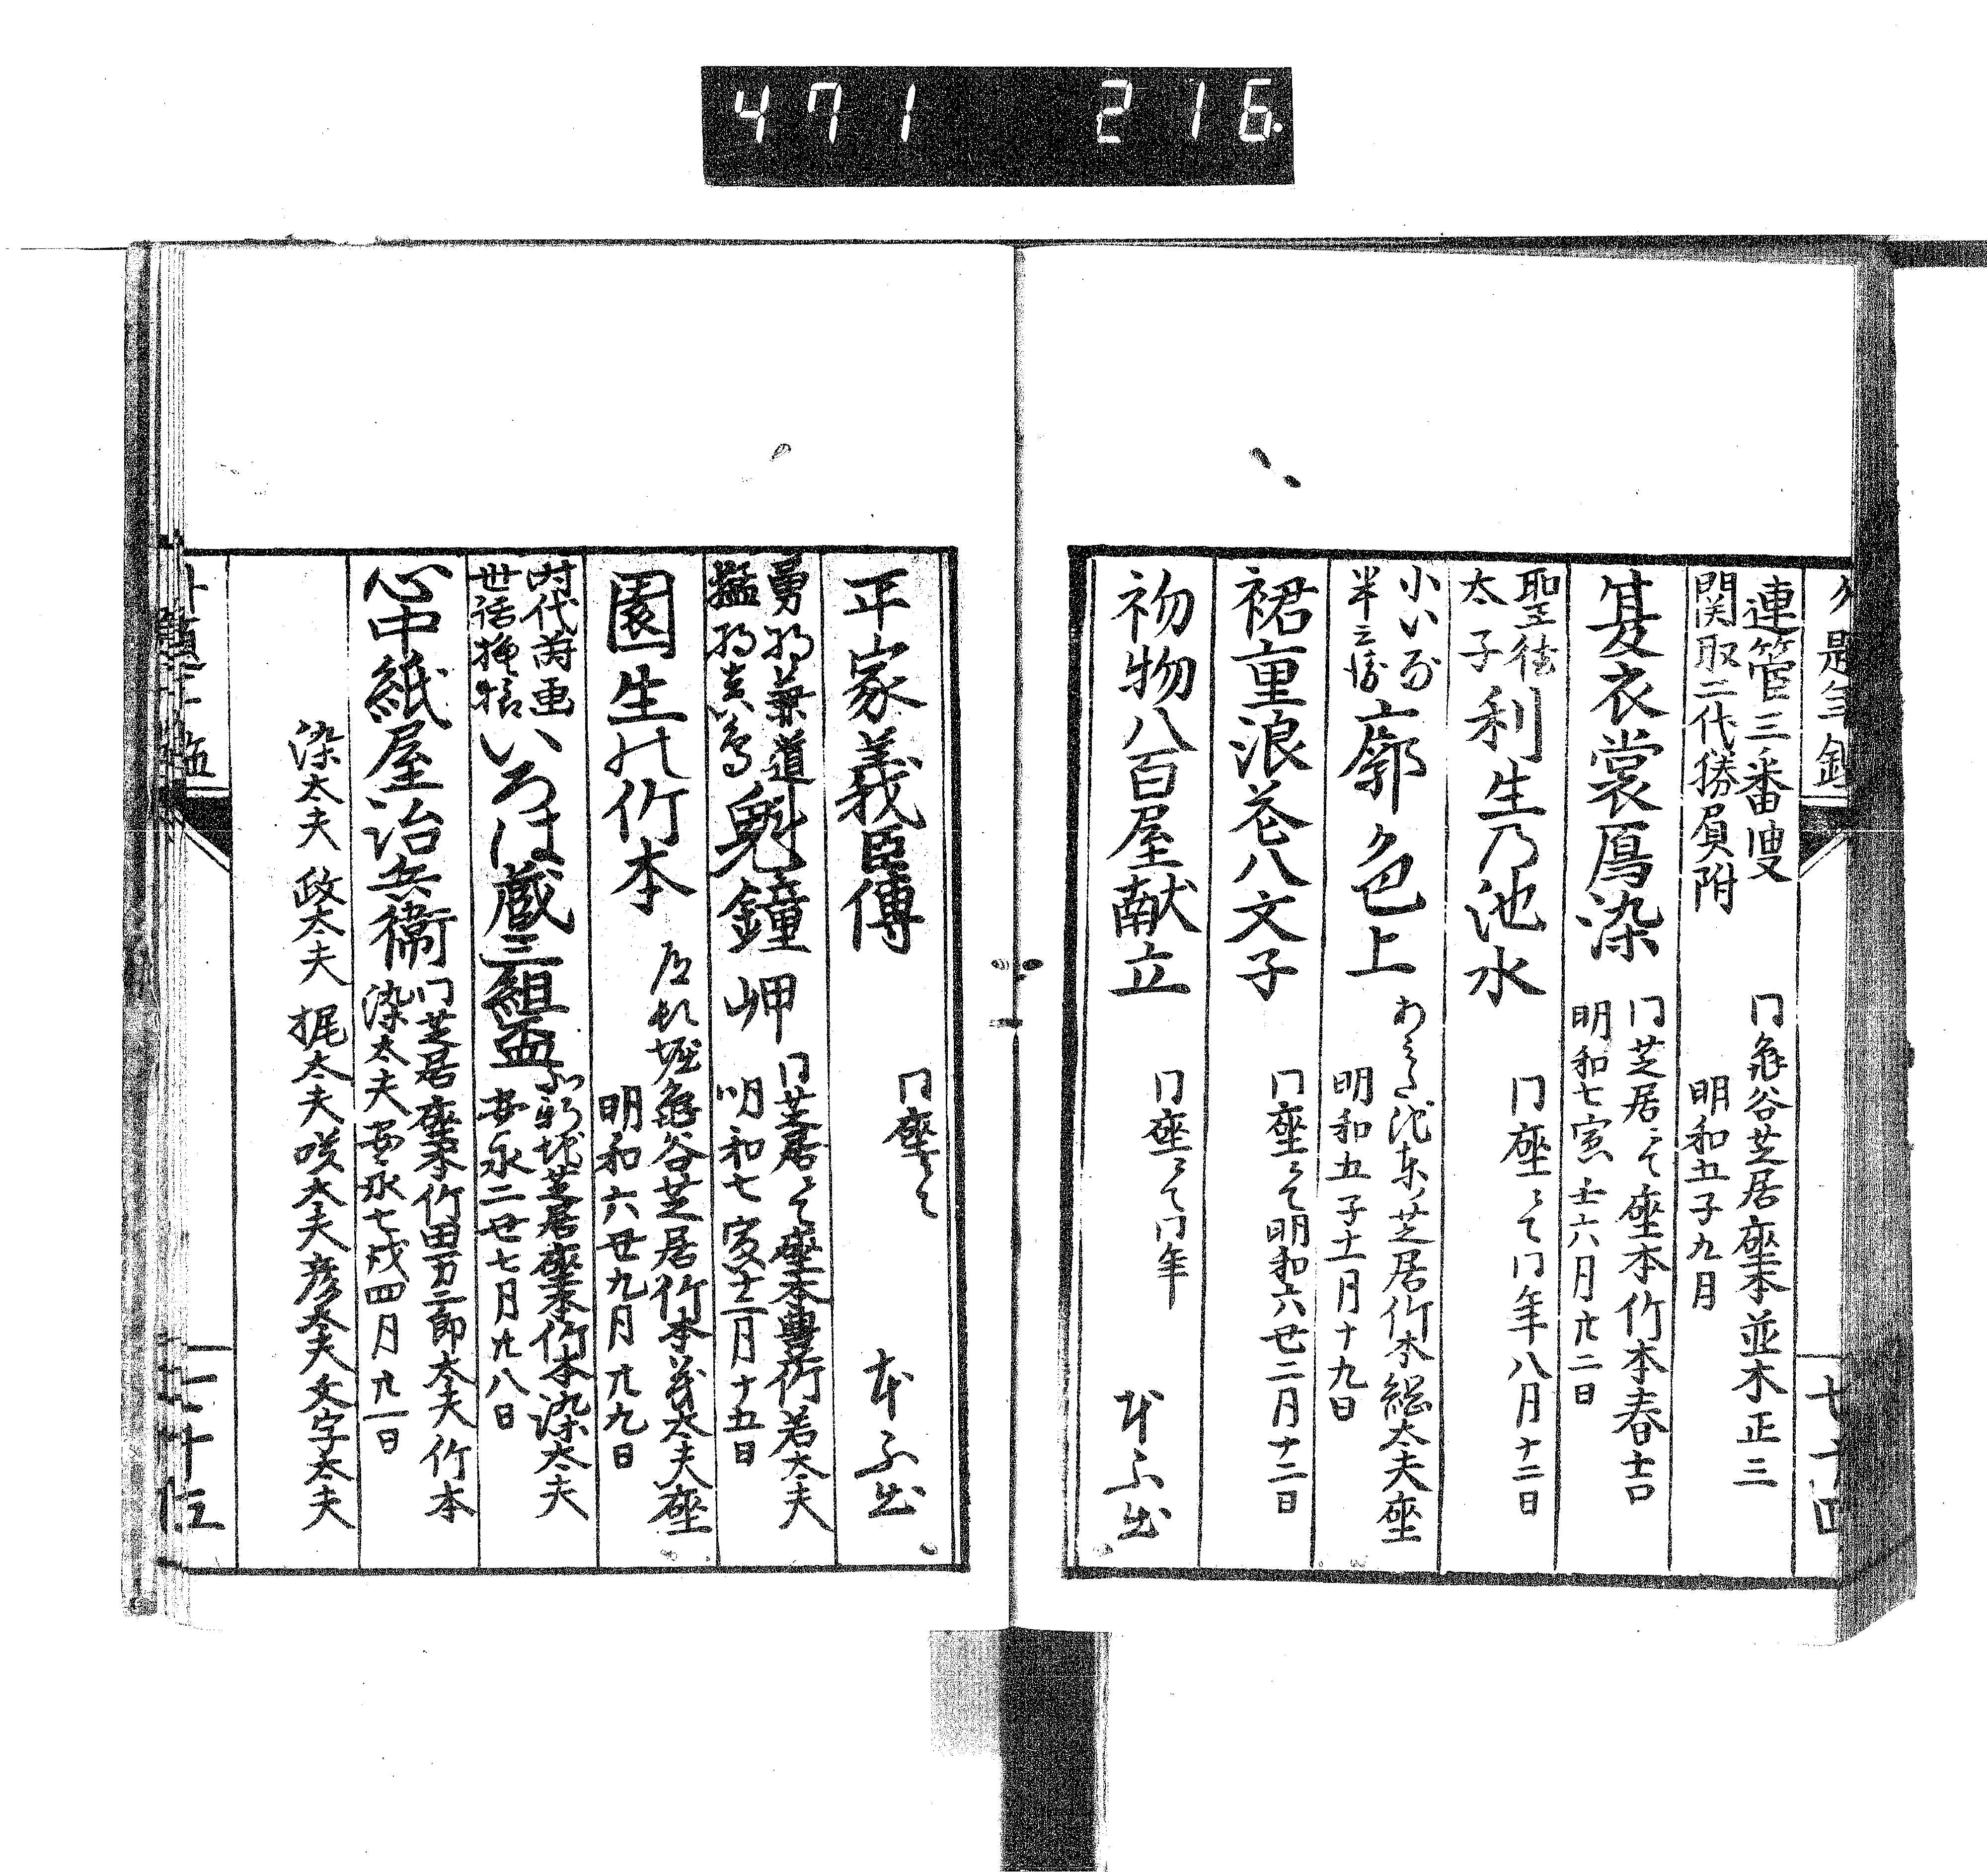 471 216
外題年鑑
連管三番叟
関取二代勝負附
门亀谷芝居座本並木正三
明和五子九月
夏衣裳鴈染
门芝居ニて座本竹本春吉
明和七寅六月廿二日
聖徳
太子
利生乃池水
门座ニて门年八月十二日
小いな
半兵衛
廓色上
芝居竹本総太夫座
明和五子十一月十九日
裙重浪花八文子
门座ニて明和六丑二月十二日
初物八百屋献立
门座ニて门年
本ふ出
七十四
平家義臣傳
门座ニて
本ふ出
勇将兼道
猛将
魁鐘岬
门芝居ニて座本豊竹若太夫
明和七寅十二月十五日
園生の竹本
道頓堀亀谷芝居竹本義太夫座
明和六丑九月廿九日
时代蒔画
世話
いろは蔵三組盃
北新地芝居座本竹本染太夫
安永二 七月廿八日
心中紙屋治兵衛
门芝居座本竹田万二郎太夫竹本
染太夫 安永七戌四月廿一日
染太夫 政太夫 梶太夫 咲太夫 彦太夫 文字太夫
七十五